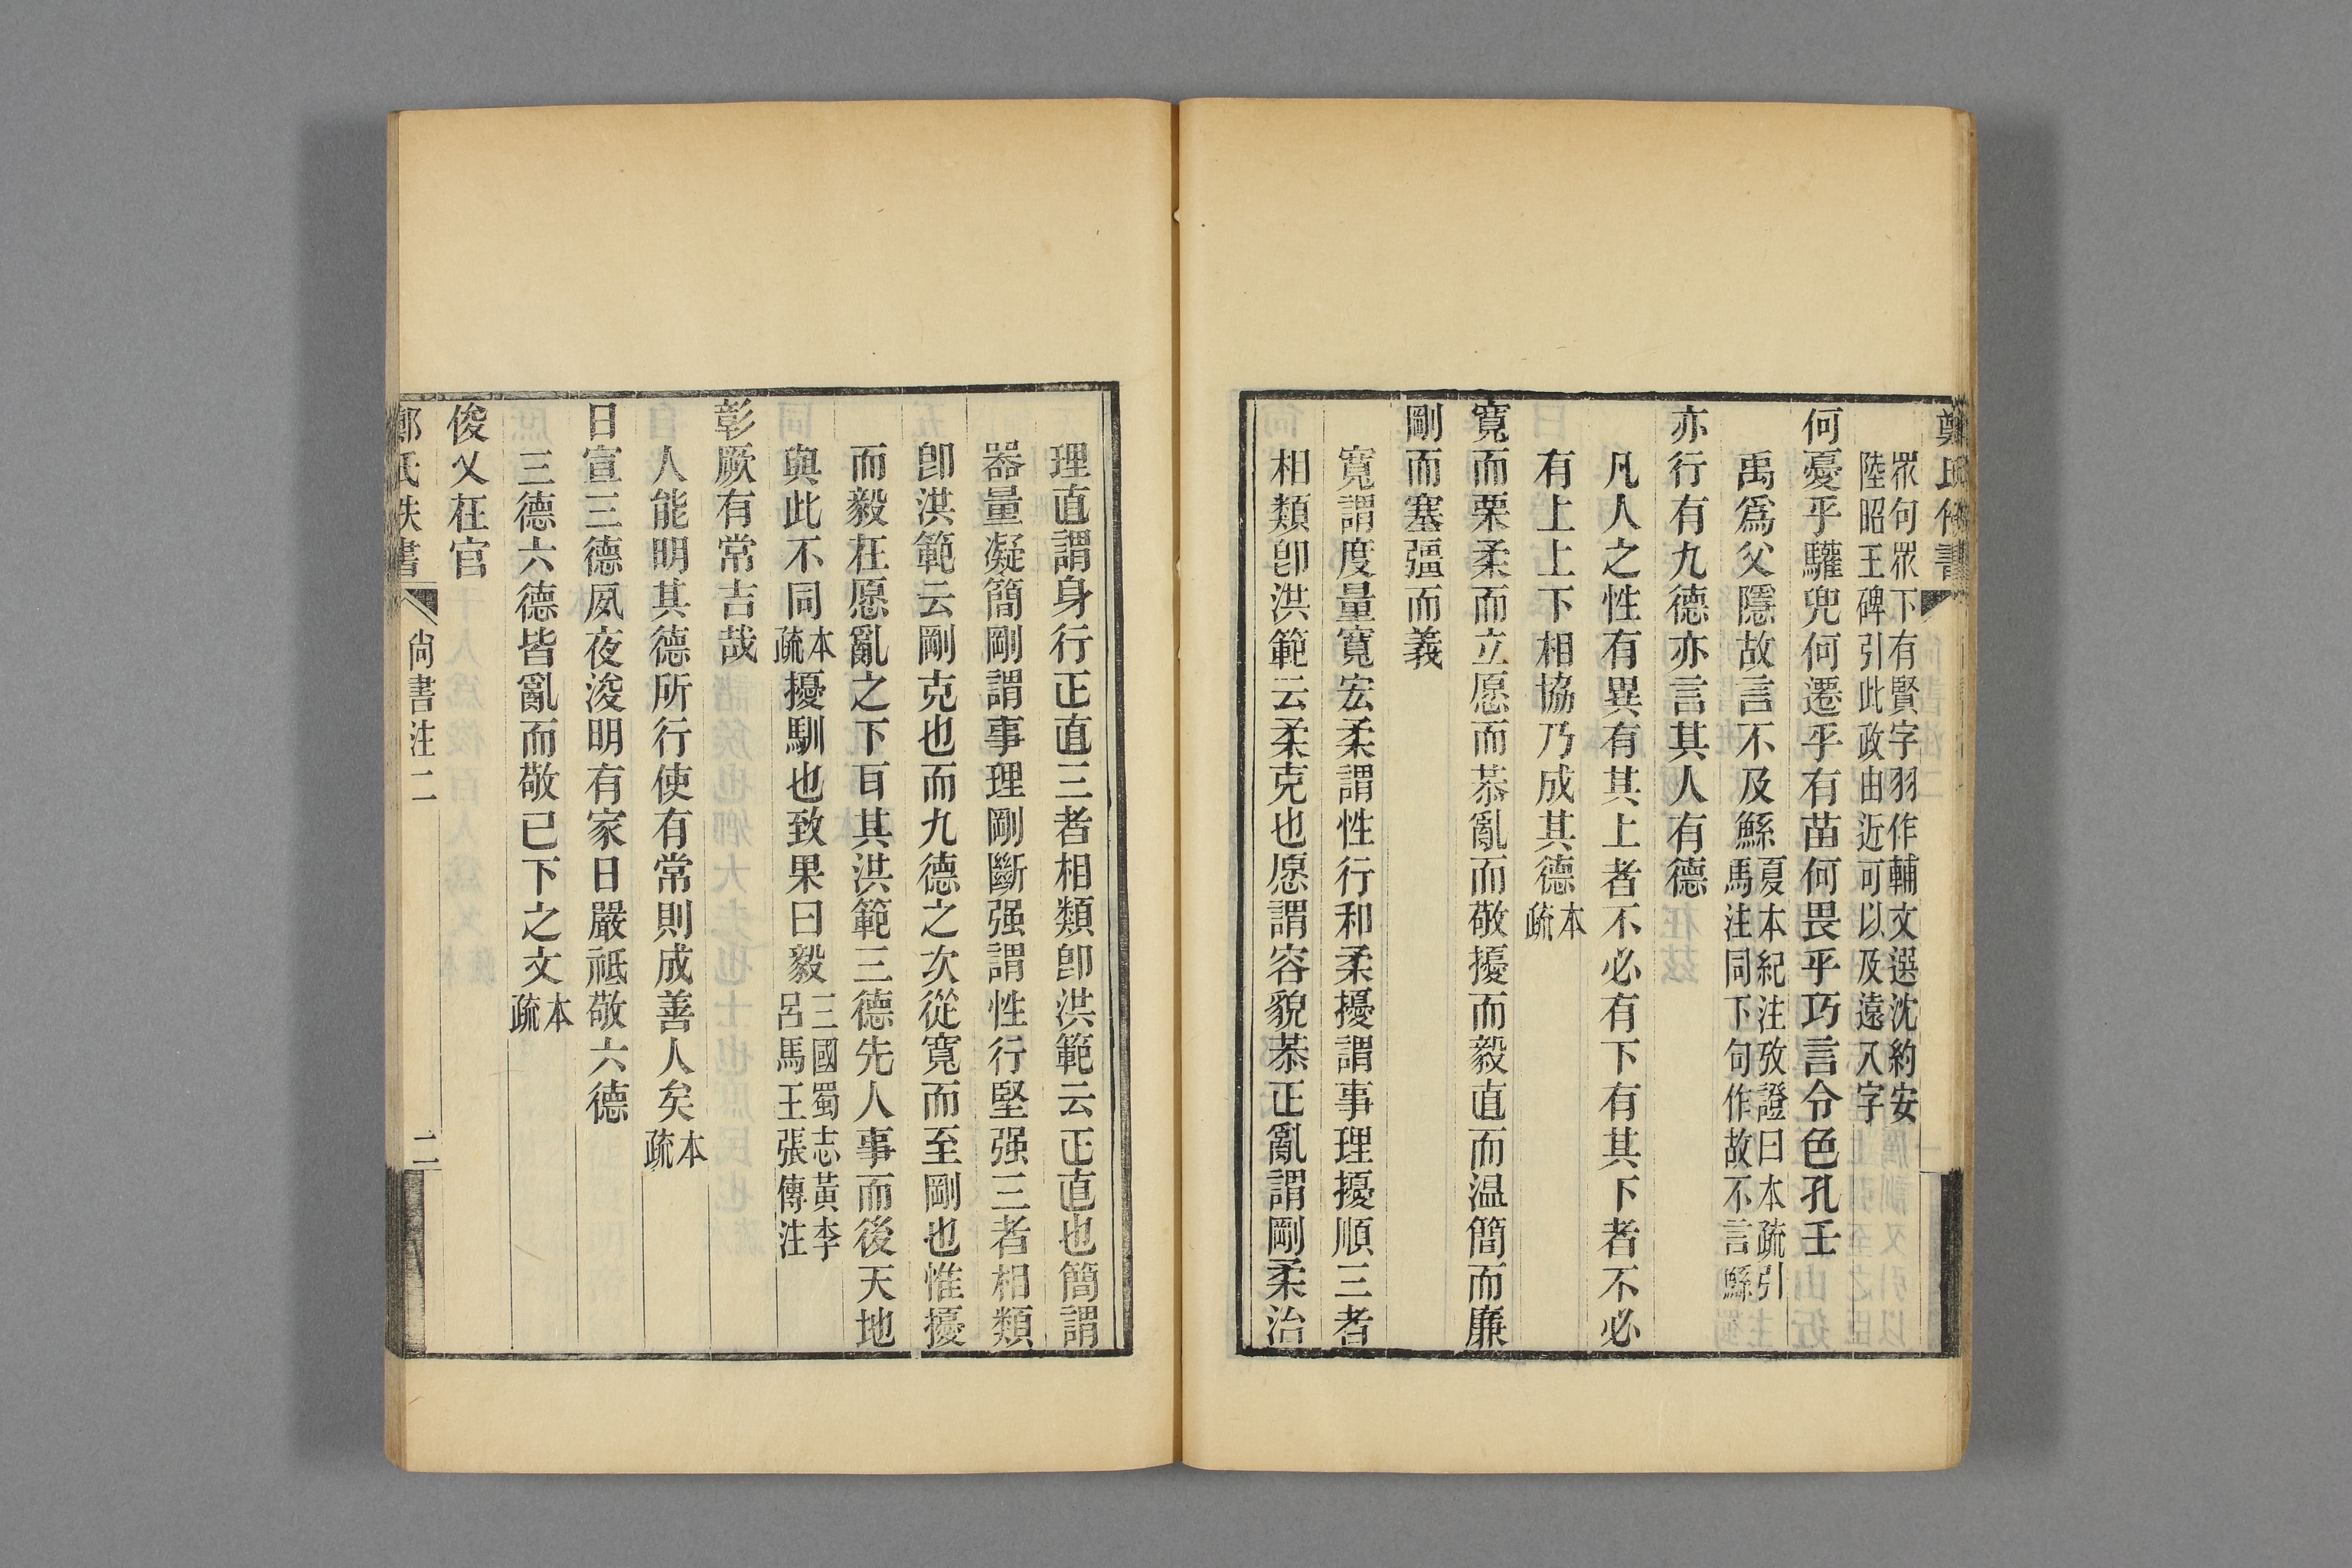 鄭氏佚書
眾句眾下有賢字羽作輔文選沈約安
陸昭王碑引此政由近可以及遠八字
何憂乎驩兜何遷乎有苗何畏乎巧言令色孔壬
禹爲父隱故言不及鯀夏本紀注攷證曰本疏引
馬注同下句作故不言鯀
亦行有九德亦言其人有德
凡人之性有異有其上者不必有下有其下者不必
有上上下相協乃成其德本疏
寬而栗柔而立愿而恭亂而敬擾而毅直而温簡而廉
剛而塞彊而義
寬謂度量寬宏柔謂性行和柔擾謂事理擾順三者
相類卽洪範云柔克也愿謂容貌恭正亂謂剛柔治
理直謂身行正直三者相類卽洪範云正直也簡謂
器量凝簡剛謂事理剛斷强謂性行堅强三者相類
卽洪範云剛克也而九德之次從寬而至剛也惟擾
而毅在愿亂之下耳其洪範三德先人事而後天地
與此不同本疏擾馴也致果曰毅三國蜀志黃李
呂馬王張傳注
彰厥有常吉哉
人能明其德所行使有常則成善人矣本疏
日宣三德夙夜浚明有家日嚴祗敬六德
三德六德皆亂而敬已下之文本疏
俊乂在官
鄭氏佚書
尙書注二
二